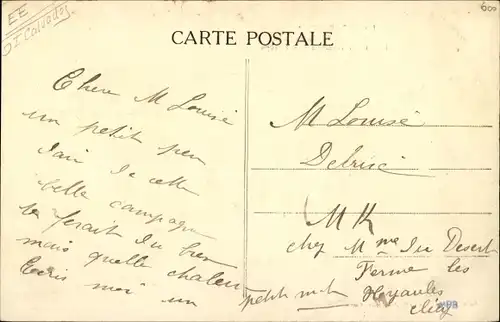 EE
CARTE POSTALE
Chere M Louise
un petit peu
d'air de cette
belle campagne
te ferait du bien
mais quelle chaleur
Ecris moi un
petit mot
M Louise
chez Mme du Desert
Ferme les